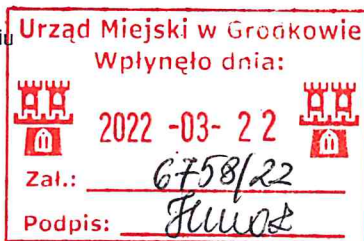 iu
Urząd Miejski w Grodkowie
Wpłynęło dnia:
2022 -03- 22
Zał.: 6758/22
Podpis: